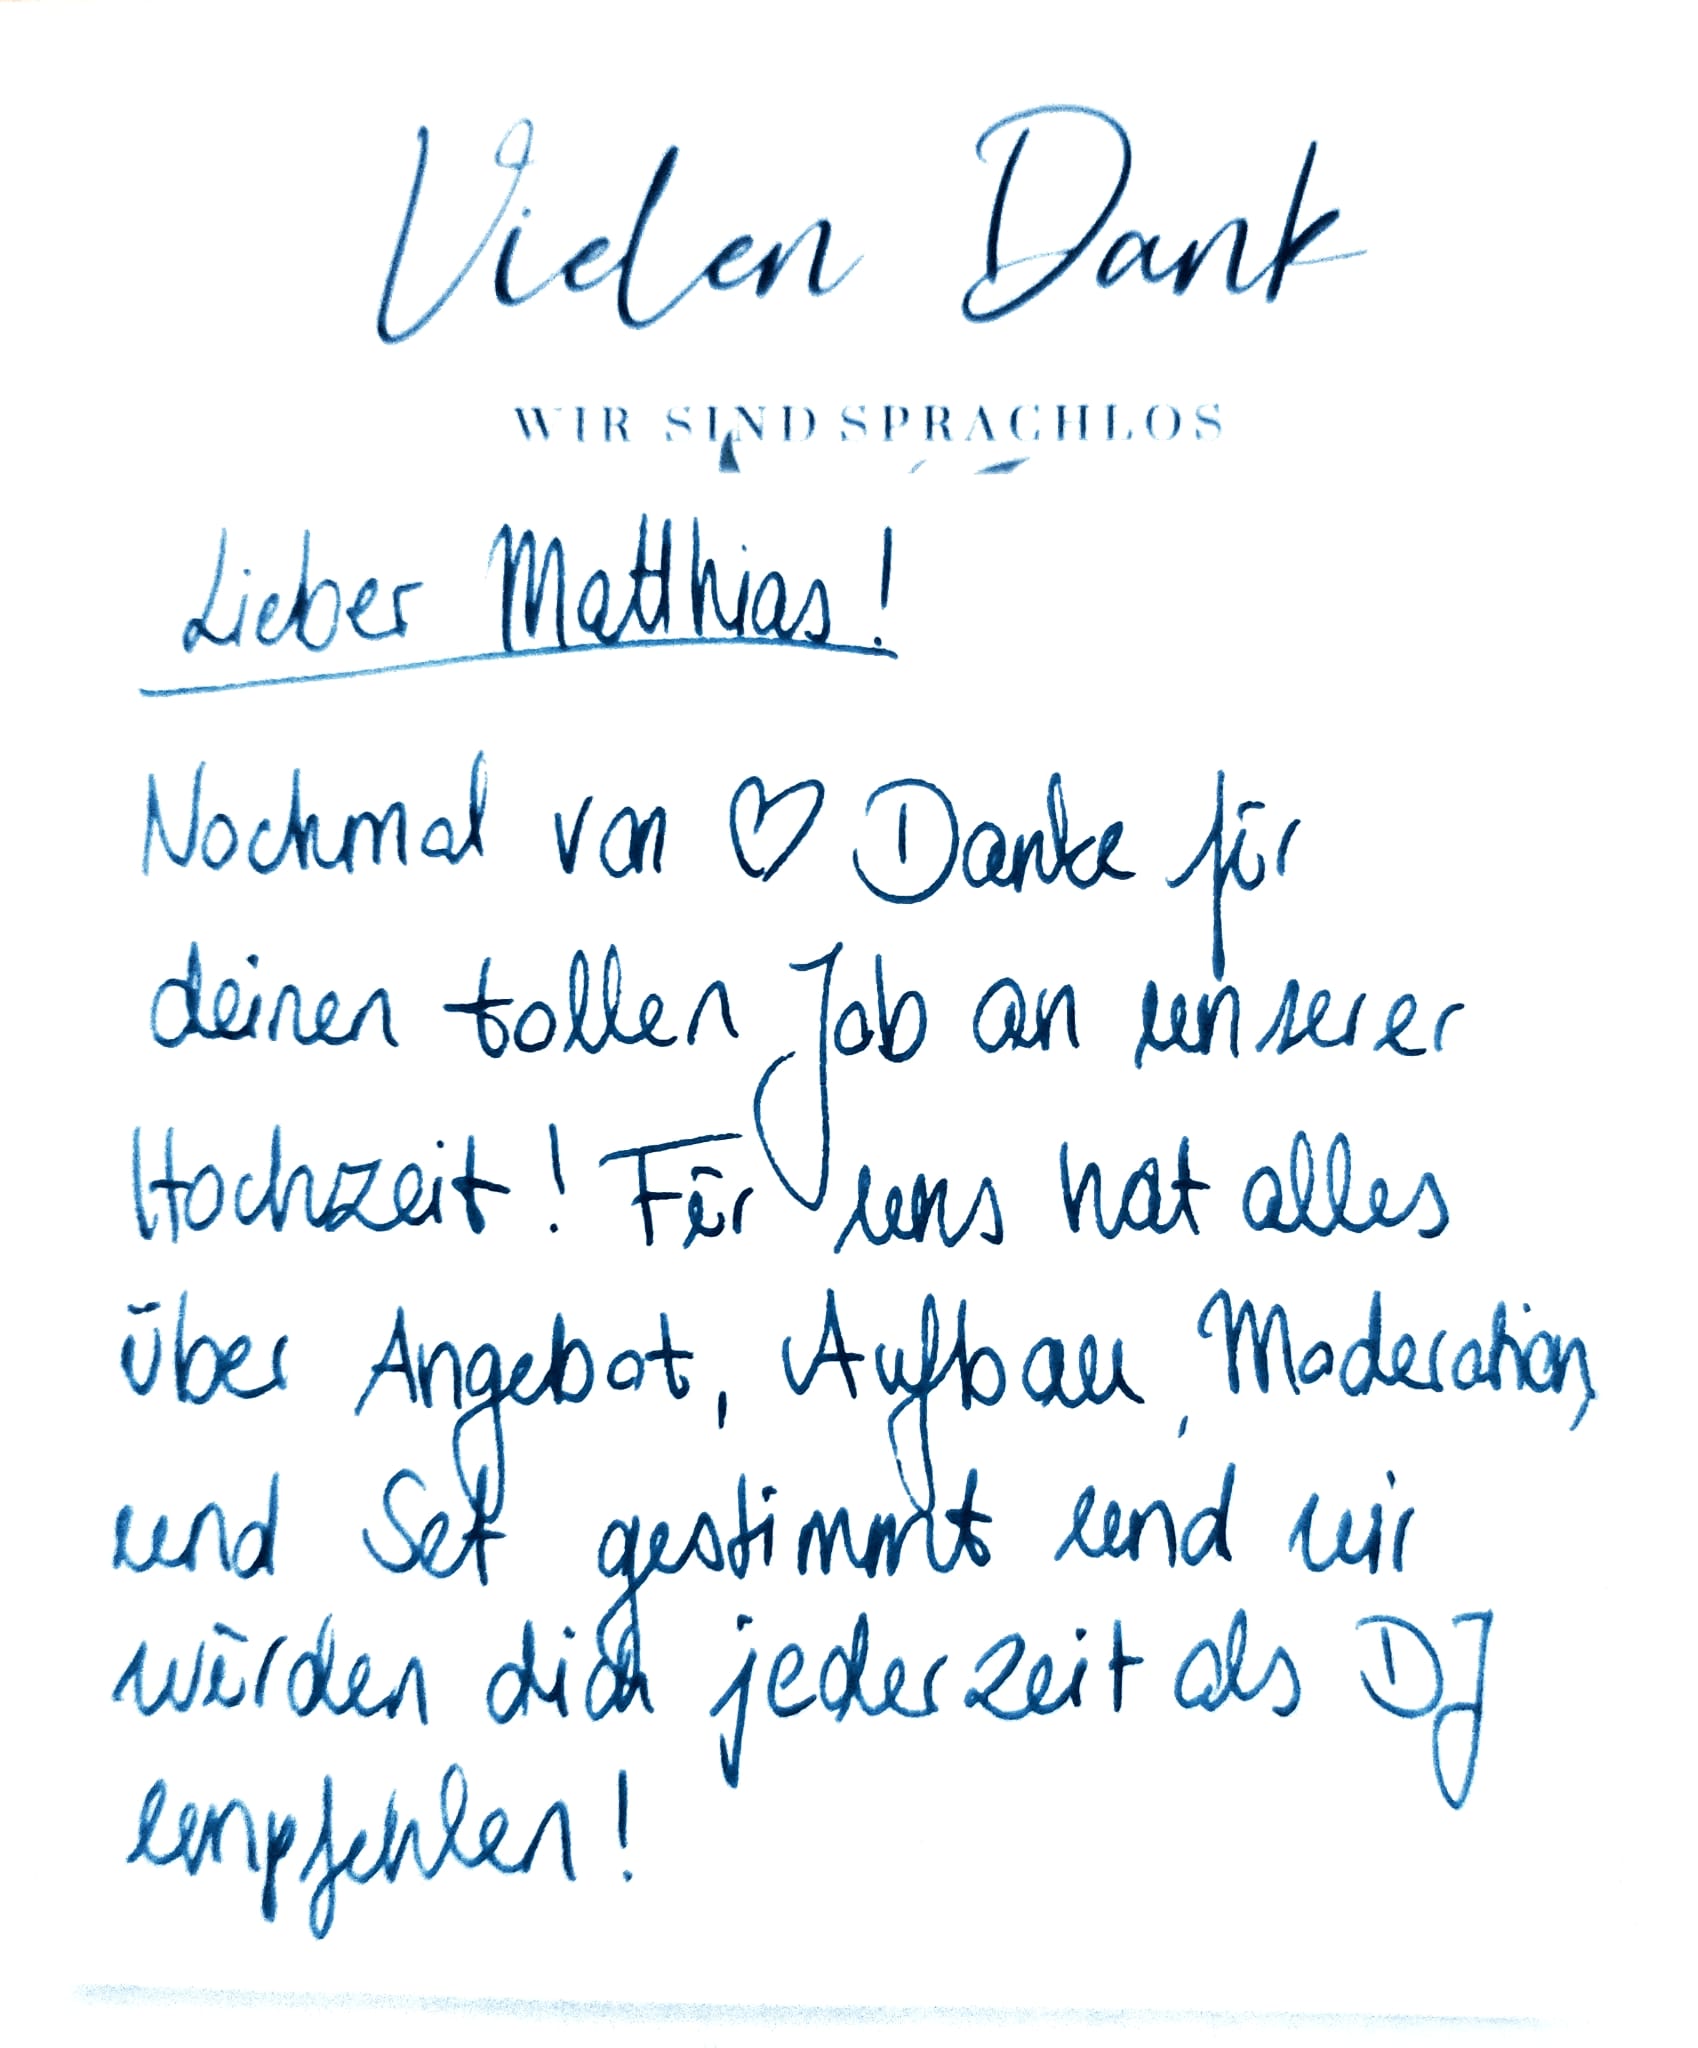 Vielen Dank
WIR SIND SPRACHLOS
Lieber Matthias!
Nochmal von ♡ Danke für
deinen tollen Job an unserer
Hochzeit! Für uns hat alles
über Angebot, Aufbau, Moderation,
und Set gestimmt und wir
würden dich jederzeit als DJ
empfehlen!